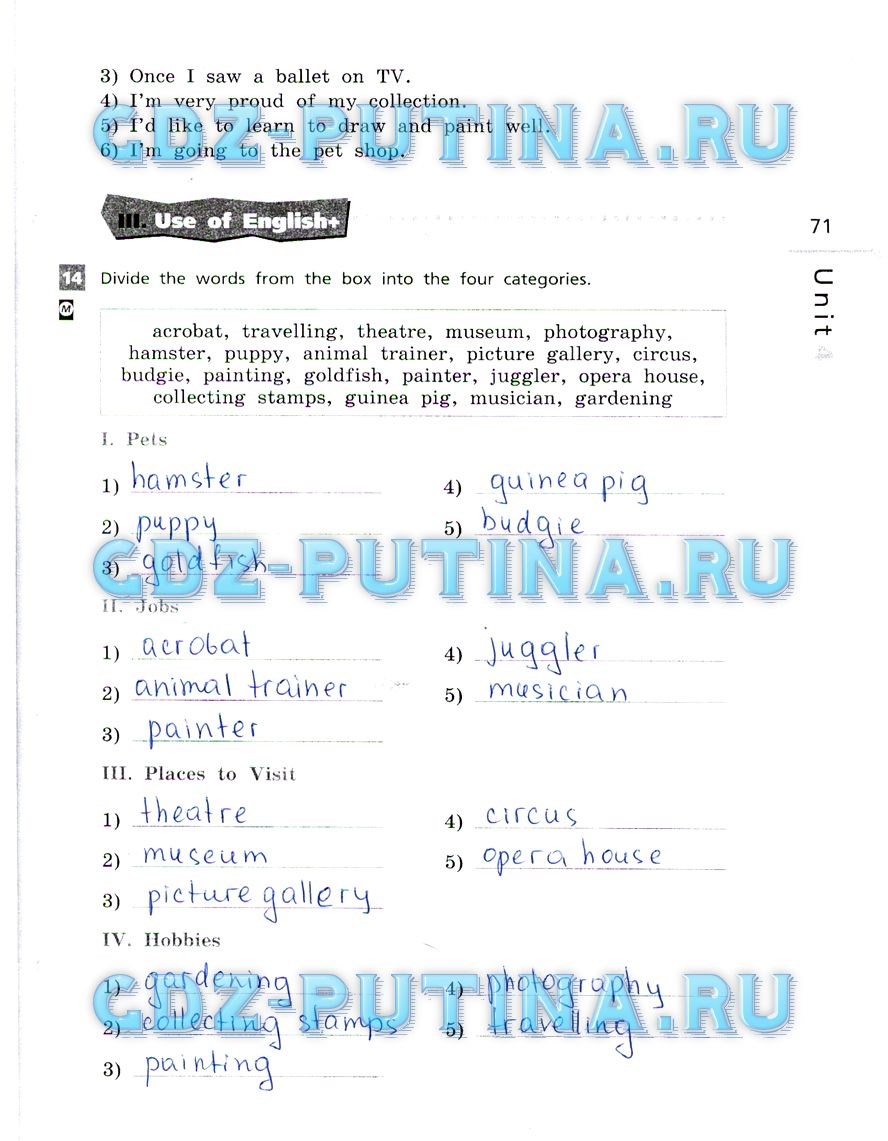 3) Once I saw a ballet on TV.
4) I'm very proud of my collection.
5) I'd like to learn to draw and paint well.
6) I'm going to the pet shop.
GDZ-PUTINA.RU
III. Use of English+
71
Unit
14 Divide the words from the box into the four categories.
M
acrobat, travelling, theatre, museum, photography,
hamster, puppy, animal trainer, picture gallery, circus,
budgie, painting, goldfish, painter, juggler, opera house,
collecting stamps, guinea pig, musician, gardening
I. Pets
1) hamster
4) guinea pig
2) puppy
5) budgie
3) goldfish
GDZ-PUTINA.RU
II. Jobs
1) acrobat
4) juggler
2) animal trainer
5) musician
3) painter
III. Places to Visit
1) theatre
4) circus
2) museum
5) opera house
3) picture gallery
IV. Hobbies
1) gardening
4) photography
GDZ-PUTINA.RU
2) collecting stamps
5) travelling
3) painting